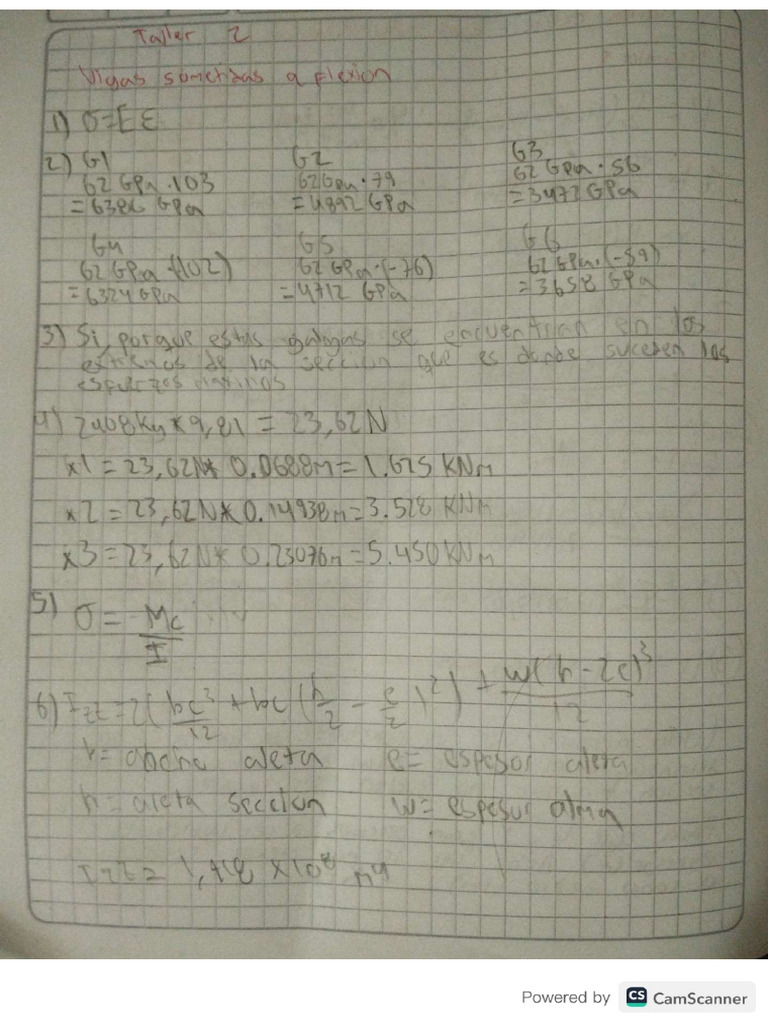 Taller 2
Vigas sometidas a flexion
1) σ=Eε
2) G1 G2 G3
62 GPa·103 62GPa·79 62 GPa·56
=6386 GPa =4892 GPa =3472 GPa
G4 G5 G6
62 GPa·(102) 62 GPa·(-76) 62 GPa·(-59)
=6324 GPa =4712 GPa =3658 GPa
3) Si, porque estas galgas se encuentran en los
extremos de la sección que es donde suceden los
esfuerzos
4) 2408Kg*9,81 = 23,62N
x1=23,62N* 0.0688m=1.625 KNm
x2=23,62N* 0.14938m=3.528 KNm
x3=23,62N* 0.23076m=5.450KNm
5) σ= Mc/I
6) Izz=2(be³/12 +be(h/2 - e/2)²) + w(h-2e)³/12
ancho aleta e= espesor aleta
h= aleta seccion w= espesor alma
Powered by CS CamScanner